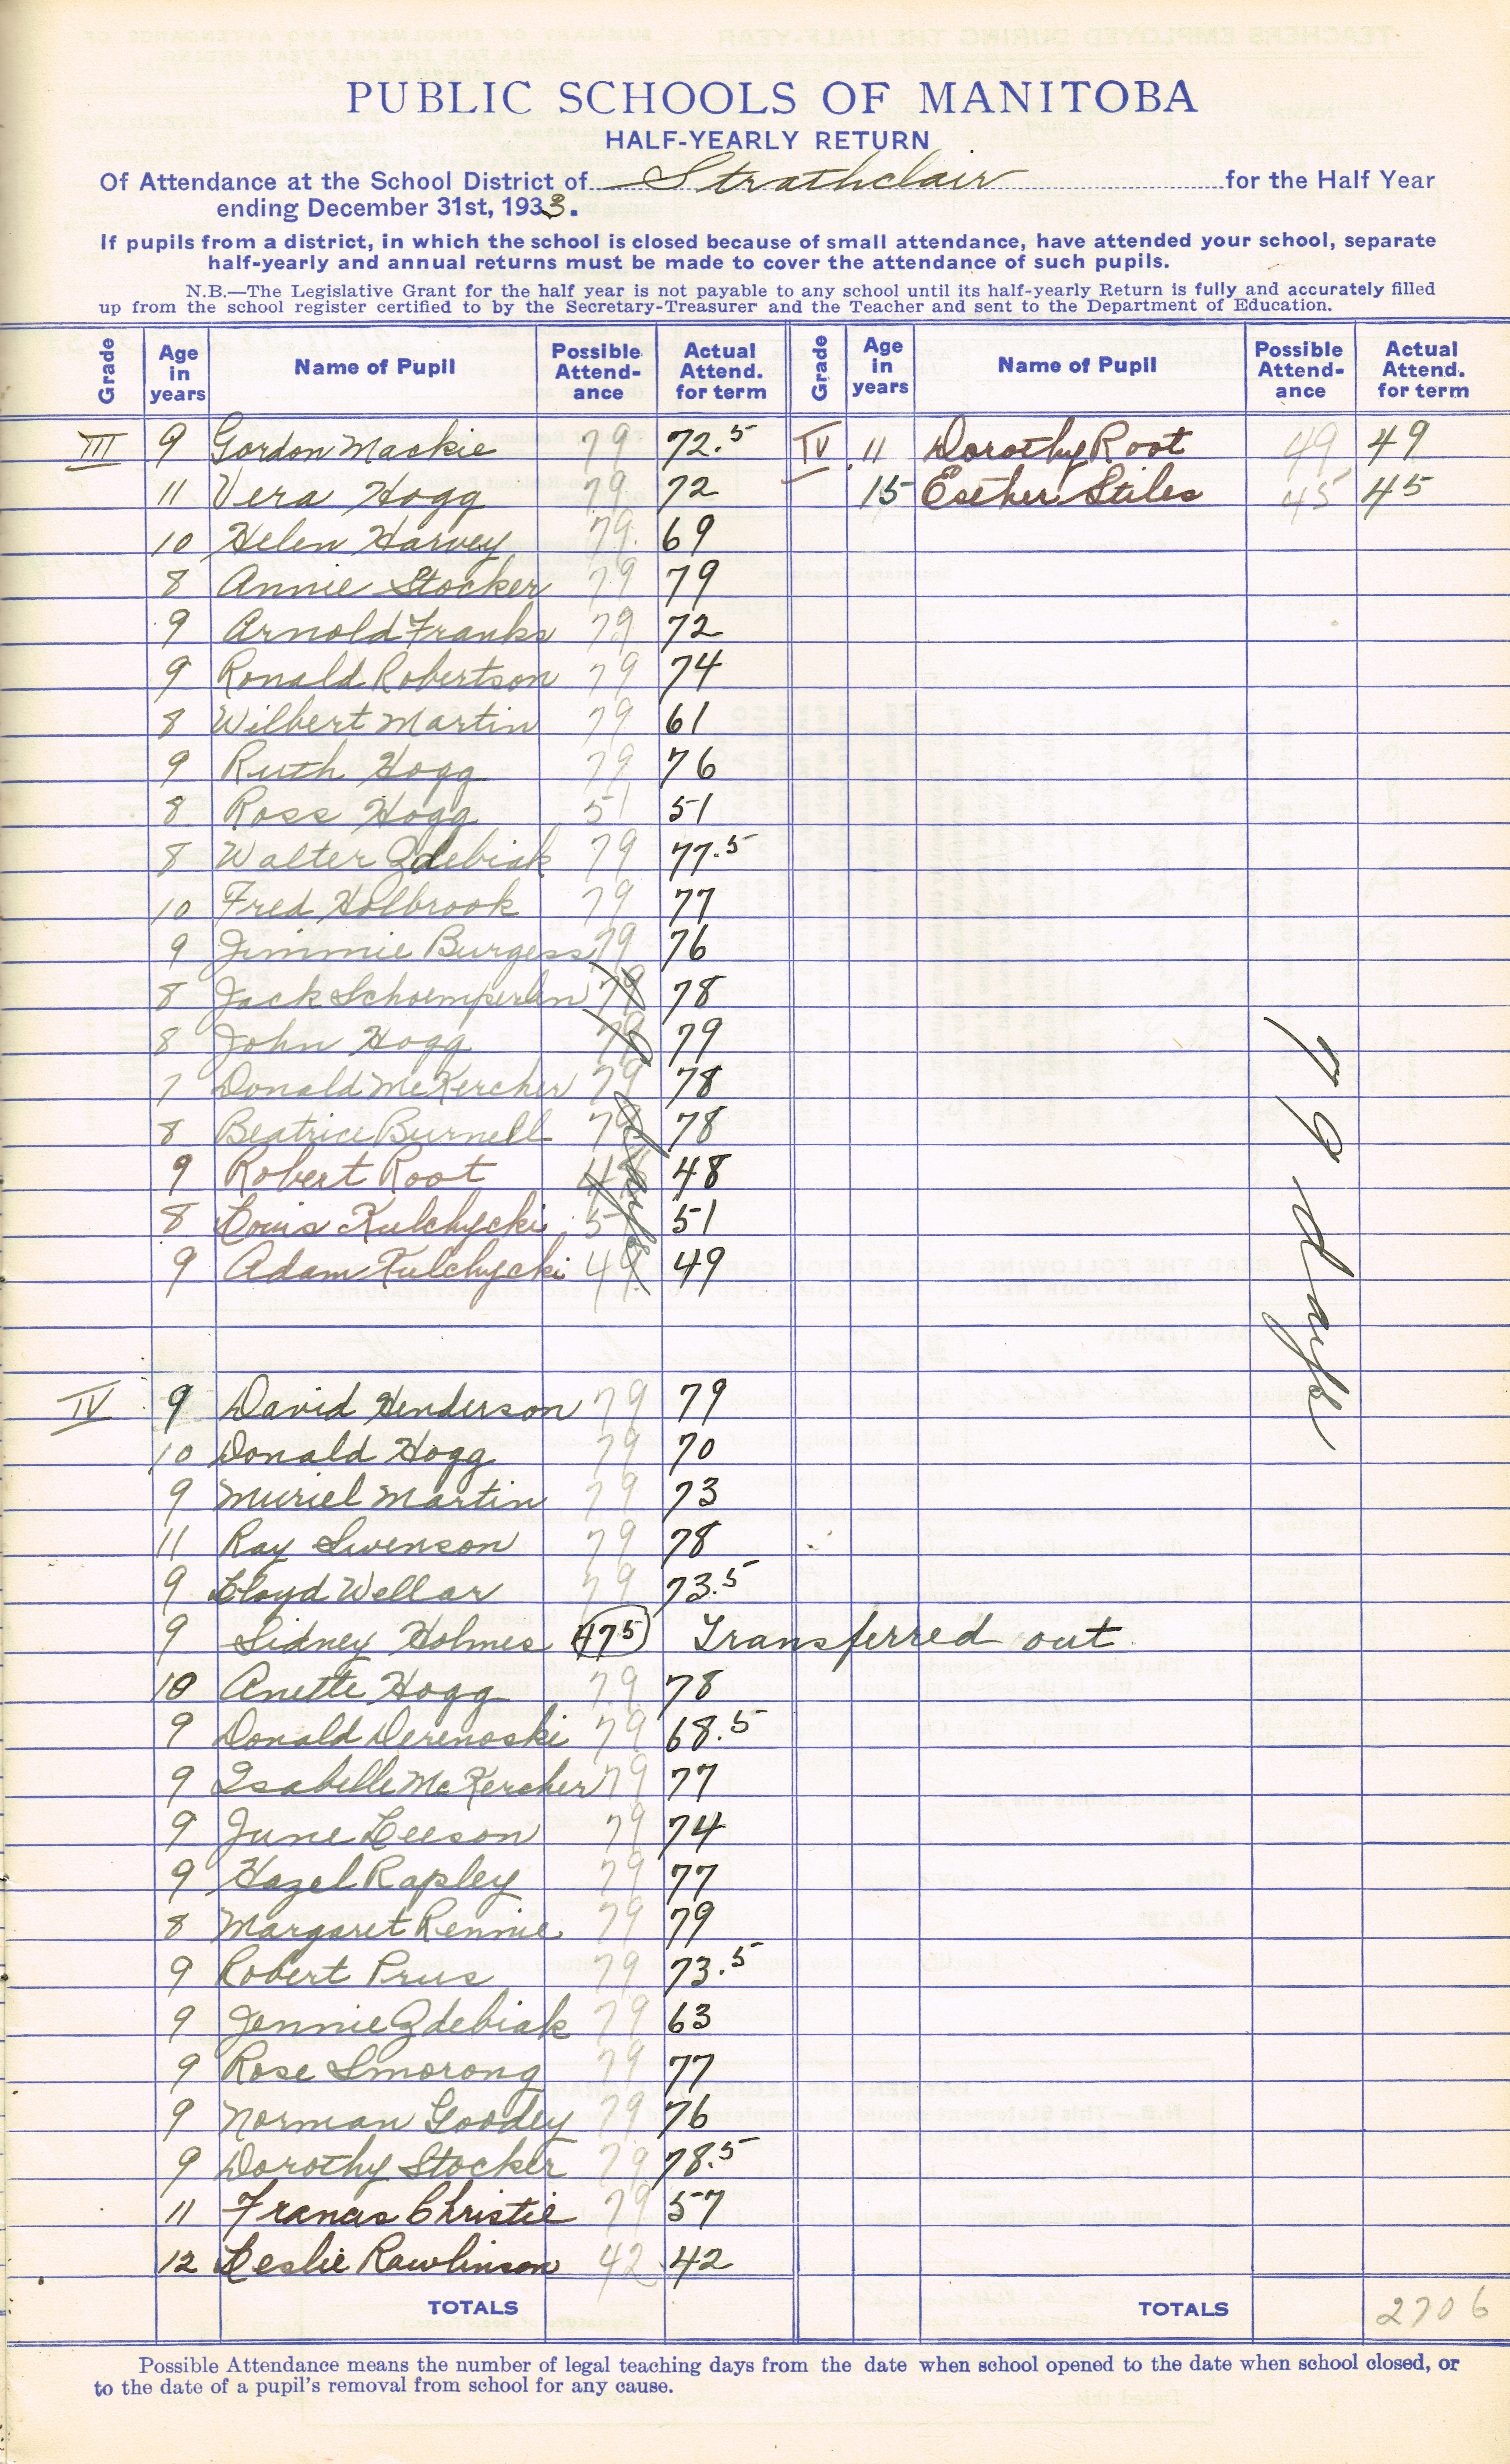 PUBLIC SCHOOLS OF MANITOBA
HALF-YEARLY RETURN
Of Attendance at the School District of Strathclair for the Half Year
ending December 31st, 1933.
If pupils from a district, in which the school is closed because of small attendance, have attended your school, separate
half-yearly and annual returns must be made to cover the attendance of such pupils.
N.B.—The Legislative Grant for the half year is not payable to any school until its half-yearly Return is fully and accurately filled
up from the school register certified to by the Secretary-Treasurer and the Teacher and sent to the Department of Education.
Grade Age in years Name of Pupil Possible Attend-ance Actual Attend. for term Grade Age in years Name of Pupil Possible Attend-ance Actual Attend. for term
III 9 Gordon Mackie 79 72.5 IV 11 Dorothy Root 49 49
11 Vera Hogg 79 72 15 Esther Stiles 45 45
10 Helen Harvey 79 69
8 Annie Stocker 79 79
9 Arnold Franks 79 72
9 Ronald Robertson 79 74
8 Wilbert Martin 79 61
9 Ruth Hogg 79 76
8 Ross Hogg 51 51
8 Walter Zdebiak 79 77.5
10 Fred Holbrook 79 77
9 Jimmie Burgess 79 76
8 Jack Schoemperlen 79 78
8 John Hogg 79 79
7 Donald McKercher 79 78
8 Beatrice Burnell 79 78
9 Robert Root 48 48
8 Louis Kulchycki 51 51
9 Adam Kulchycki 49 49
79 days
79 days
IV 9 David Henderson 79 79
10 Donald Hogg 79 70
9 Muriel Martin 79 73
11 Ray Swenson 79 78
9 Lloyd Wellar 79 73.5
9 Sidney Holmes 47.5 Transferred out
10 Anette Hogg 79 78
9 Donald Derenoski 79 68.5
9 Isabelle McKercher 79 77
9 June Leeson 79 74
9 Hazel Rapley 79 77
8 Margaret Rennie 79 79
9 Robert Prus 79 73.5
9 Jennie Zdebiak 79 63
9 Rose Smorong 79 77
9 Norman Goodey 79 76
9 Dorothy Stocker 79 78.5
11 Francis Christie 79 57
12 Leslie Rawlinson 42 42
TOTALS TOTALS 2706
Possible Attendance means the number of legal teaching days from the date when school opened to the date when school closed, or
to the date of a pupil's removal from school for any cause.